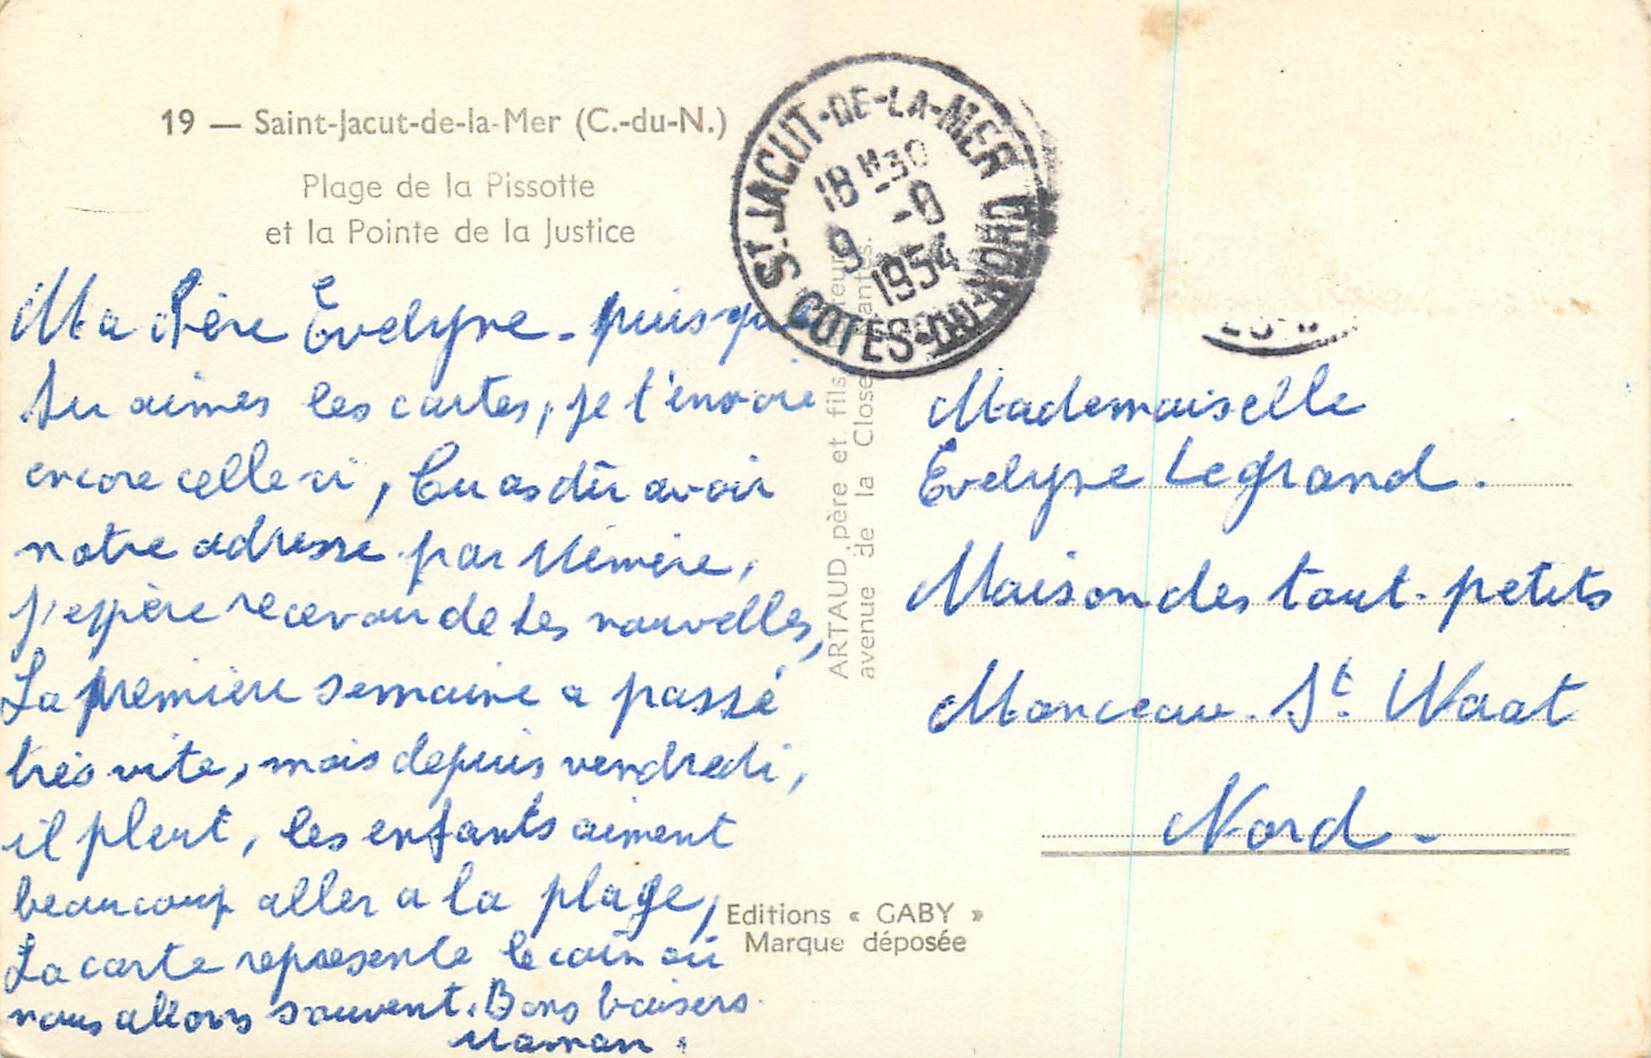 19 — Saint-Jacut-de-la-Mer (C.-du-N.)
Plage de la Pissotte
et la Pointe de la Justice
Ma chère Evelyne - puisque
tu aimes les cartes, je t'envoie
encore celle ci, tu as dû avoir
notre adresse par Mémère,
j'espère recevoir de tes nouvelles,
La première semaine a passé
très vite, mais depuis vendredi,
il pleut, les enfants aiment
beaucoup aller a la plage,
La carte represente le coin où
nous allons souvent. Bons baisers.
Maman.
ST. JACUT-DE-LA-MER
COTES-DU-NORD
18 H 30
9 -9
1954
ARTAUD père et fils
avenue de la Close
Mademoiselle
Evelyne Legrand.
Maison des tout-petits
Monceau. St. Waat
Nord -
Editions « GABY »
Marque déposée